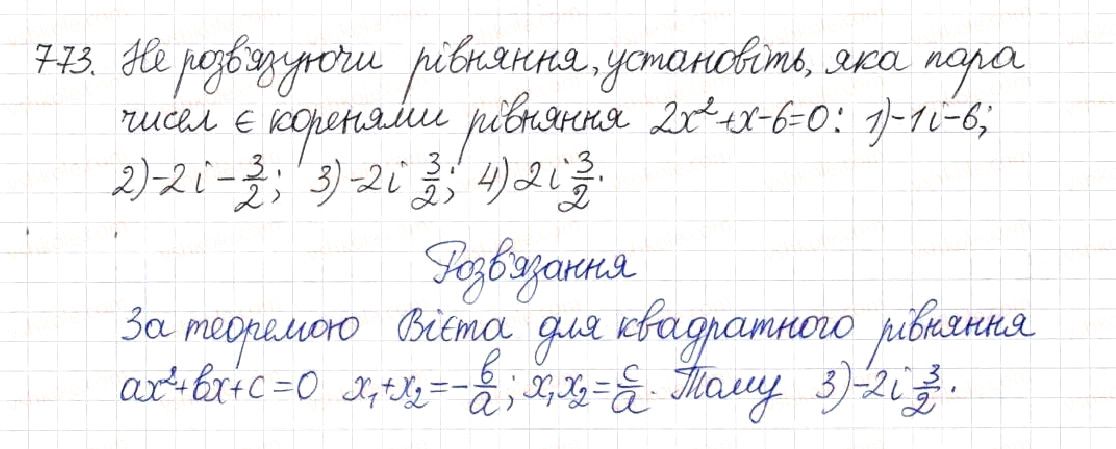 773. Не розв'язуючи рівняння, установіть, яка пара
чисел є коренями рівняння 2x²+x-6=0: 1)-1 і -6;
2)-2 і -3/2; 3)-2 і 3/2; 4) 2 і 3/2.
Розв'язання
За теоремою Вієта для квадратного рівняння
ax²+bx+c=0 x₁+x₂=-b/a; x₁x₂=c/a. Тому 3)-2 і 3/2.